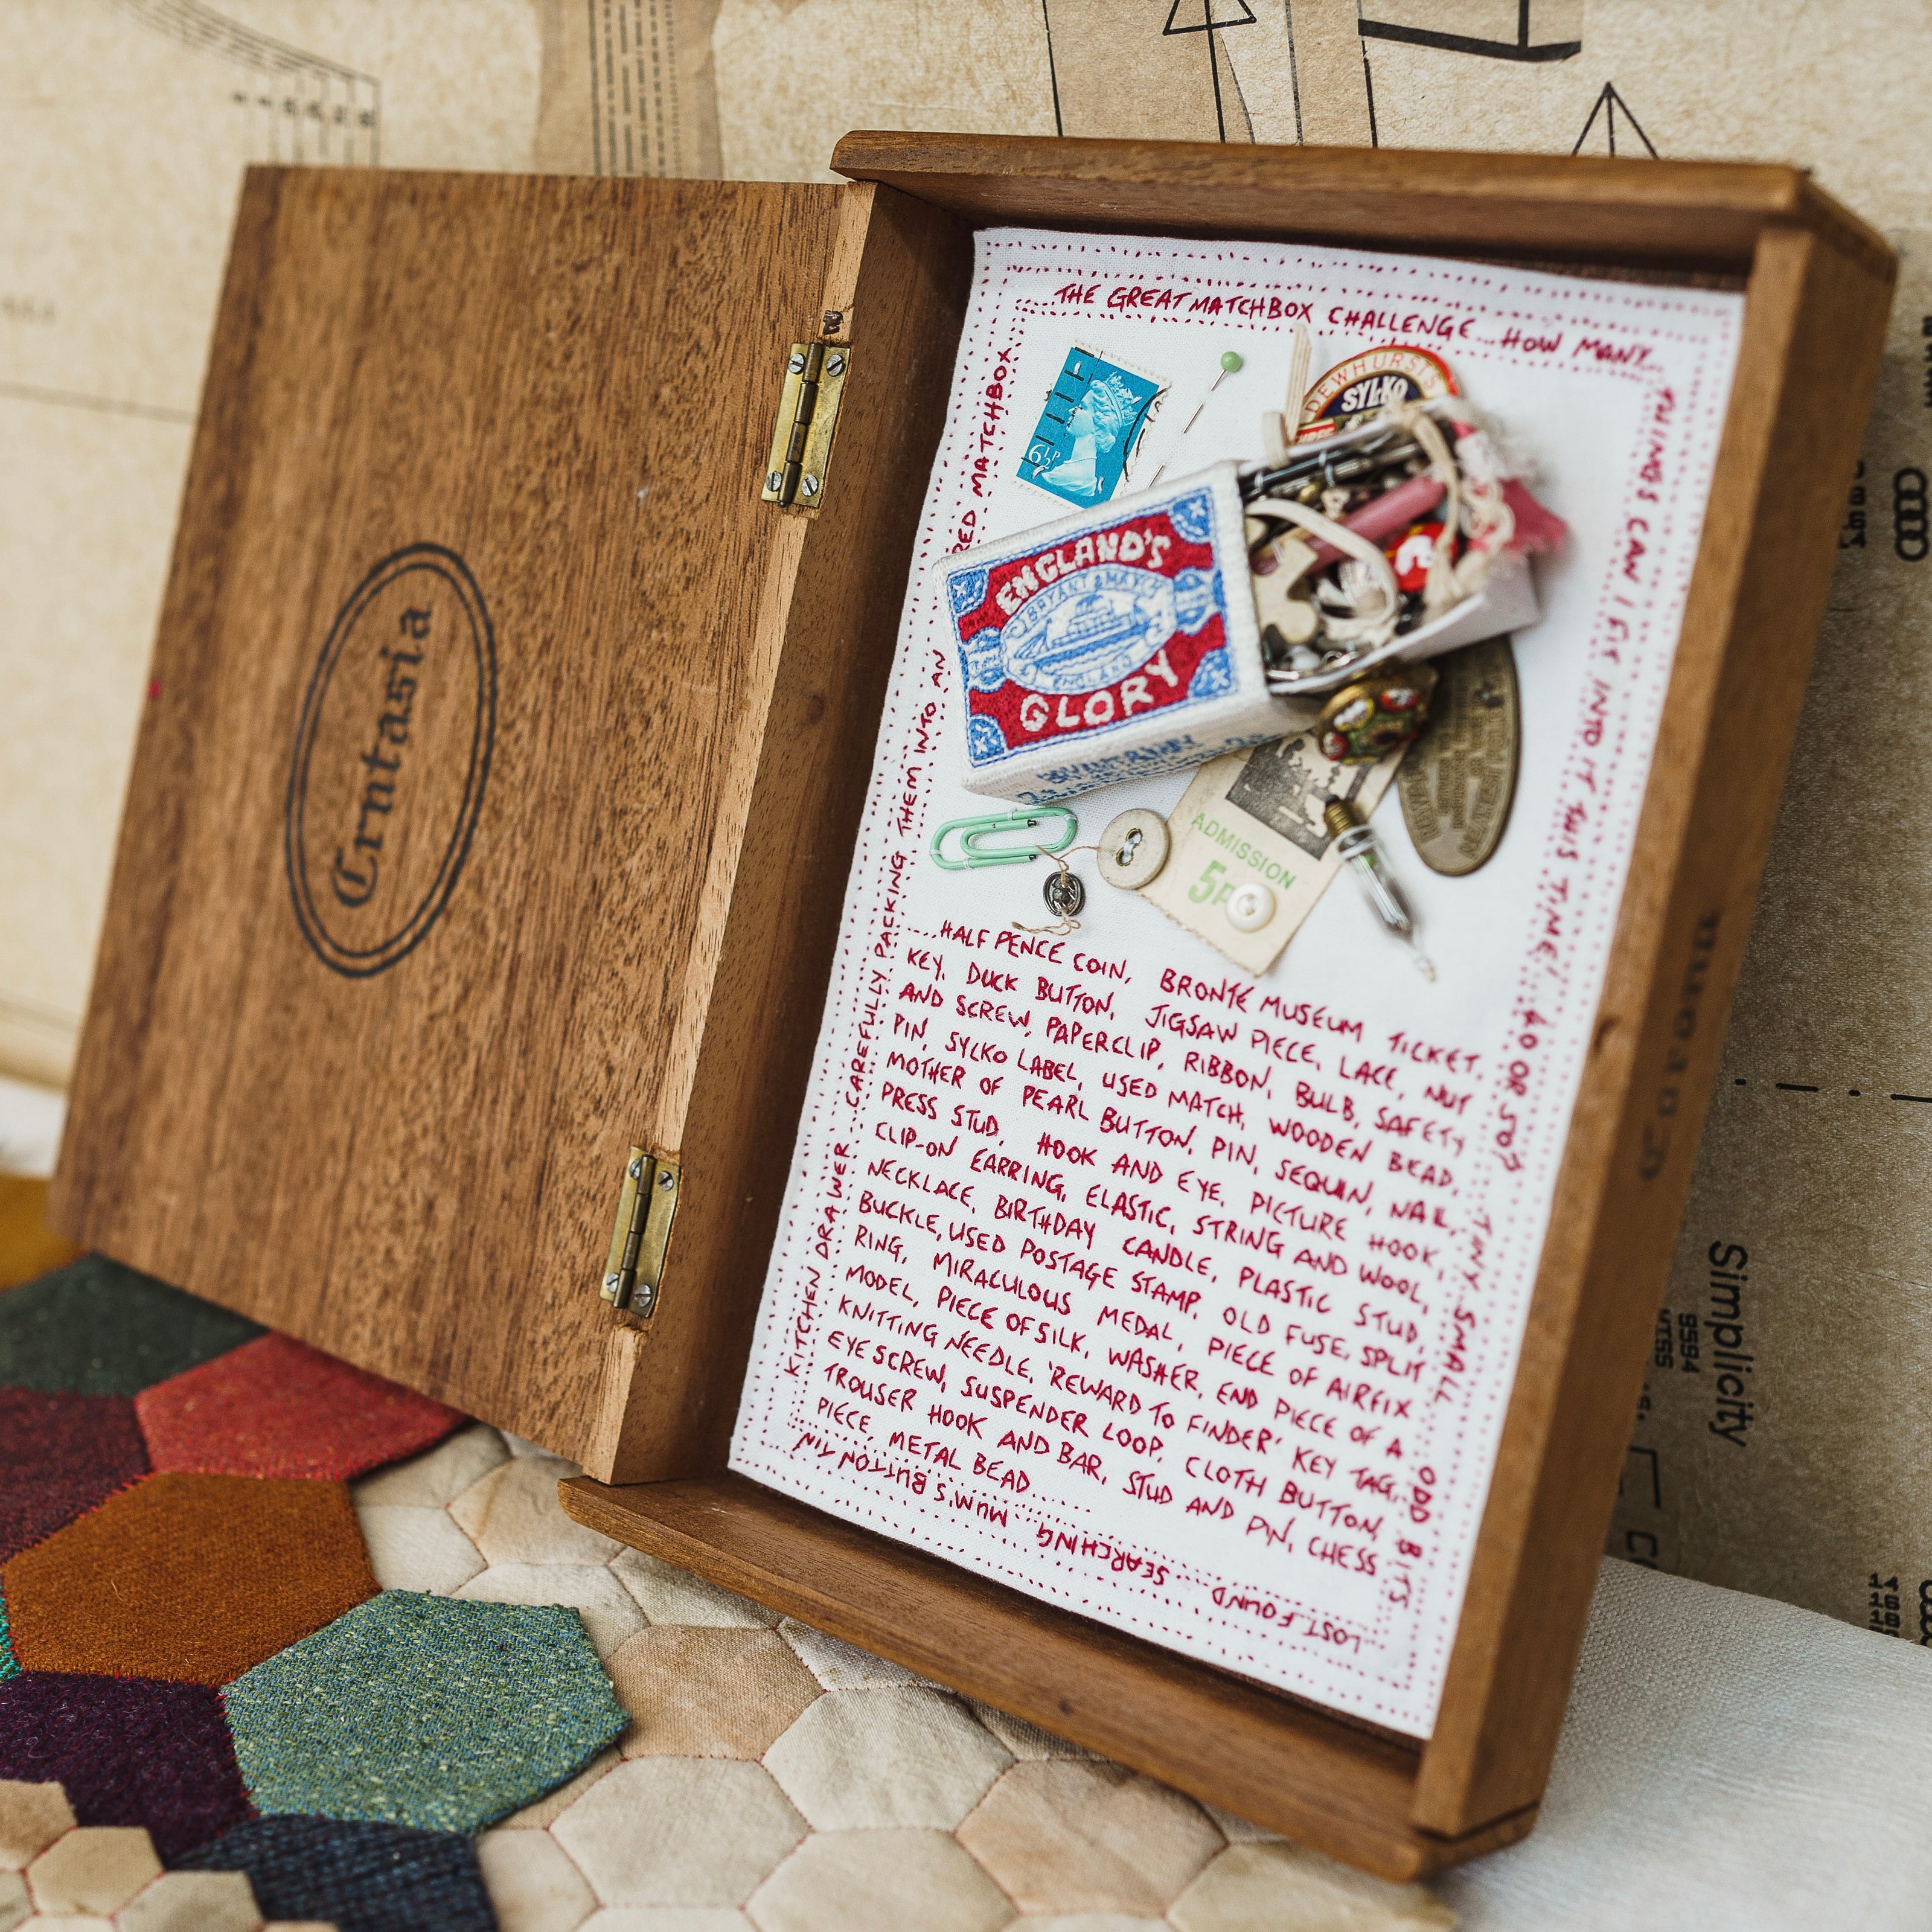 Crntasia
THE GREAT MATCHBOX CHALLENGE... HOW MANY...
THINGS CAN I FIT INTO IT THIS TIME! 40 OR 50?
TINY SMALL ODD BITS
LOST FOUND SEARCHING MUM'S BUTTON TIN
KITCHEN DRAWER ...CAREFULLY PACKING THEM INTO AN
RED MATCHBOX
6½P
DEWHURST'S
SYLKO
ENGLAND'S
BRYANT & MAY
ENGLAND
GLORY
ADMISSION
5P
....HALF PENCE COIN, BRONTË MUSEUM TICKET,
KEY, DUCK BUTTON, JIGSAW PIECE, LACE, NUT
AND SCREW, PAPERCLIP, RIBBON, BULB, SAFETY
PIN, SYLKO LABEL, USED MATCH, WOODEN BEAD,
MOTHER OF PEARL BUTTON, PIN, SEQUIN, NAIL,
PRESS STUD, HOOK AND EYE, PICTURE HOOK,
CLIP-ON EARRING, ELASTIC, STRING AND WOOL,
NECKLACE, BIRTHDAY CANDLE, PLASTIC STUD,
BUCKLE, USED POSTAGE STAMP, OLD FUSE, SPLIT
RING, MIRACULOUS MEDAL, PIECE OF AIRFIX
MODEL, PIECE OF SILK, WASHER, END PIECE OF A
KNITTING NEEDLE, 'REWARD TO FINDER' KEY TAG,
EYE SCREW, SUSPENDER LOOP, CLOTH BUTTON,
TROUSER HOOK AND BAR, STUD AND PIN, CHESS
PIECE, METAL BEAD......
Simplicity
9594